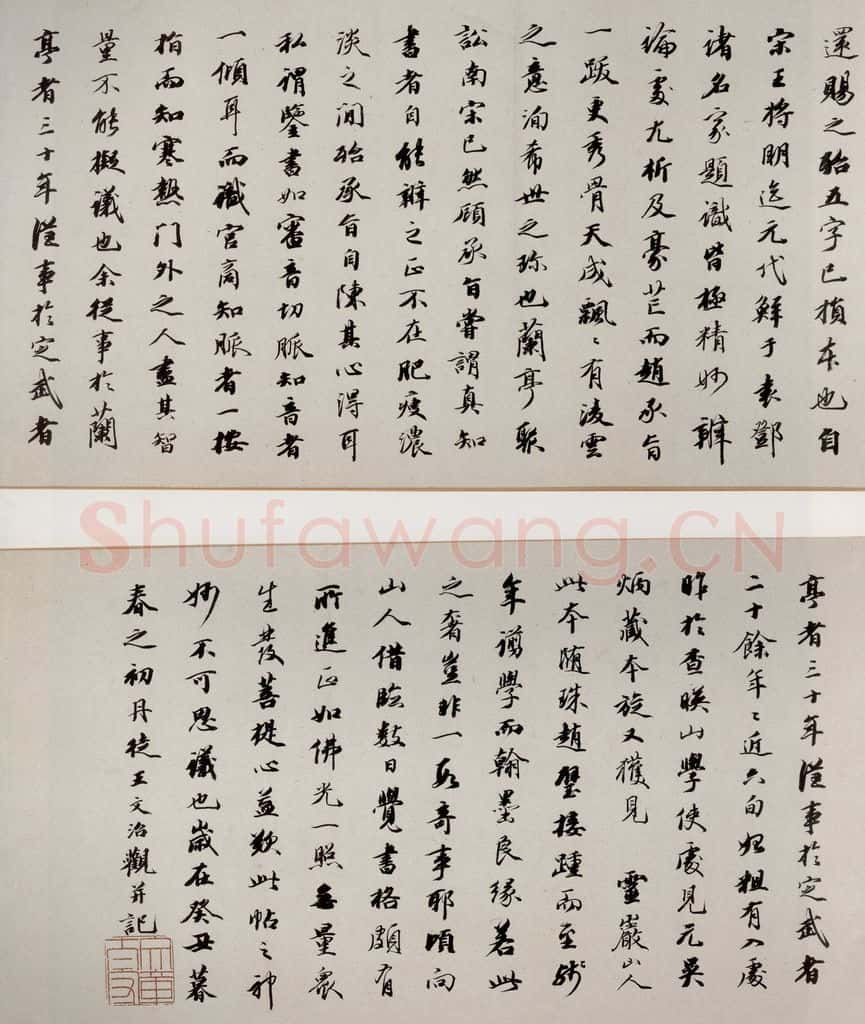 還賜之殆五字已損本也自
宋王將明迄元代鮮于袁鄧
諸名家題識皆極精妙辨
論處尤析及豪芒而趙承旨
一跋更秀骨天成飄〻有凌雲
之意洵希世之珍也蘭亭聚
訟南宋已然顧承旨嘗謂真知
書者自能辨之正不在肥瘦濃
淡之間殆承旨自陳其心得耳
私謂鑒書如審音切脈知音者
一傾耳而識宮商知脈者一接
指而知寒熱門外之人盡其智
量不能擬議也余從事於蘭
亭者三十年從事於定武者
Shufawang.CN
亭者三十年從事於定武者
二十餘年〻近六旬始粗有入處
昨於查映山學使處見元吳
炳藏本旋又獲見 靈巖山人
此本隨珠趙璧接踵而至殘
年譾學而翰墨良緣若此
之奢豈非一段奇事耶頃向
山人借臨數日覺書格頗有
所進正如佛光一照無量眾
生發菩提心益歎此帖之神
妙不可思議也歲在癸丑暮
春之初丹徒王文治觀并記